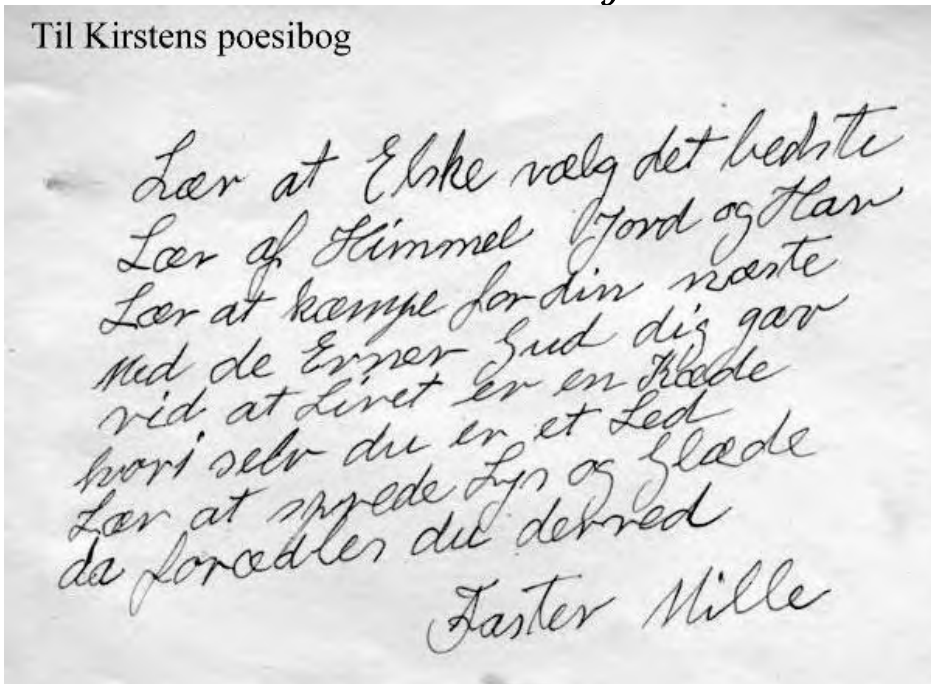 Til Kirstens poesibog
Lær at Elske vælg det bedste
Lær af Himmel Jord og Hav
Lær at kæmpe for din næste
med de Evner Gud dig gav
vid at Livet er en Kæde
hvori selv du er et Led
Lær at sprede Lys og Glæde
da forædles du derved
Faster Mille